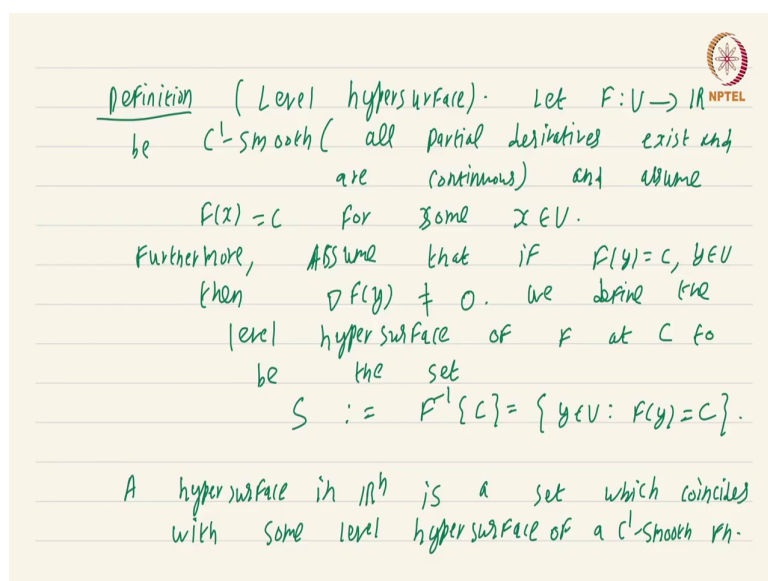 Definition (Level hypersurface). Let F: U → IR
NPTEL
be C¹-smooth (all partial derivatives exist and
are continuous) and assume
F(x) = C for some x ∈ U.
Furthermore, Assume that if F(y) = C, y ∈ U
then ∇F(y) ≠ 0. we define the
level hypersurface of F at C to
be the set
S := F⁻¹{C} = {y ∈ U : F(y) = C}.
A hypersurface in IRⁿ is a set which coincides
with some level hypersurface of a C¹-smooth fn.